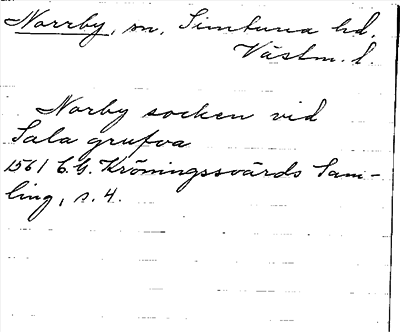 Norrby, sn, Simtuna hd.
Västm. l.
Norby socken vid
Sala grufva
1561 C.G. Kröningssvärds Sam-
ling, s. 4.